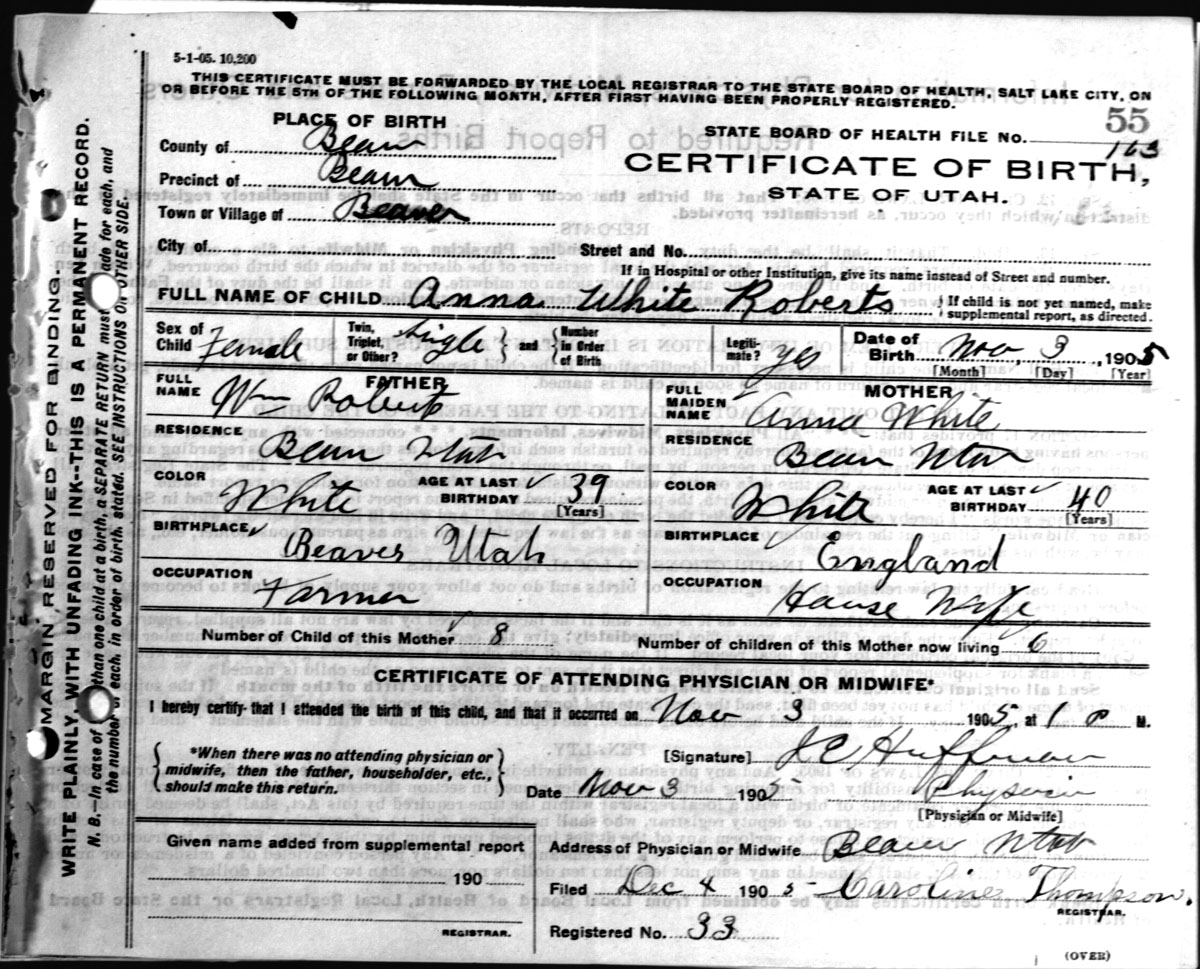 5-1-05. 10,200
THIS CERTIFICATE MUST BE FORWARDED BY THE LOCAL REGISTRAR TO THE STATE BOARD OF HEALTH, SALT LAKE CITY, ON
OR BEFORE THE 5TH OF THE FOLLOWING MONTH, AFTER FIRST HAVING BEEN PROPERLY REGISTERED.
55
PLACE OF BIRTH
STATE BOARD OF HEALTH FILE No. 163
County of Beaver
CERTIFICATE OF BIRTH,
Precinct of Beaver
STATE OF UTAH.
Town or Village of Beaver
City of
Street and No.
If in Hospital or other Institution, give its name instead of Street and number.
FULL NAME OF CHILD Anna White Roberts
If child is not yet named, make
supplemental report, as directed.
Sex of Child Female
Twin, Triplet, or Other? Single and Number in Order of Birth
Legiti-mate? Yes
Date of Birth Nov. 3, 1905
[Month] [Day] [Year]
FATHER
FULL NAME Wm Roberts
MOTHER
FULL MAIDEN NAME Anna White
RESIDENCE Beaver Utah
RESIDENCE Beaver Utah
COLOR White
AGE AT LAST BIRTHDAY 39
[Years]
COLOR White
AGE AT LAST BIRTHDAY 40
[Years]
BIRTHPLACE Beaver Utah
BIRTHPLACE England
OCCUPATION Farmer
OCCUPATION House Wife
Number of Child of this Mother 8
Number of children of this Mother now living 6
CERTIFICATE OF ATTENDING PHYSICIAN OR MIDWIFE*
I hereby certify that I attended the birth of this child, and that it occurred on Nov 3 1905, at 1 P M.
*When there was no attending physician or
midwife, then the father, householder, etc.,
should make this return.
[Signature] Huffman
Date Nov 3 190
Physician
[Physician or Midwife]
Given name added from supplemental report
190
REGISTRAR.
Address of Physician or Midwife Beaver Utah
Filed Dec 4 1905 Caroline Thompson.
REGISTRAR.
Registered No. 33
(OVER)
MARGIN RESERVED FOR BINDING
WRITE PLAINLY WITH UNFADING INK--THIS IS A PERMANENT RECORD.
N. B.--In case of than one child at a birth, a SEPARATE RETURN must ade for each, and
the number of each, in order of birth, stated. SEE INSTRUCTIONS ON OTHER SIDE.